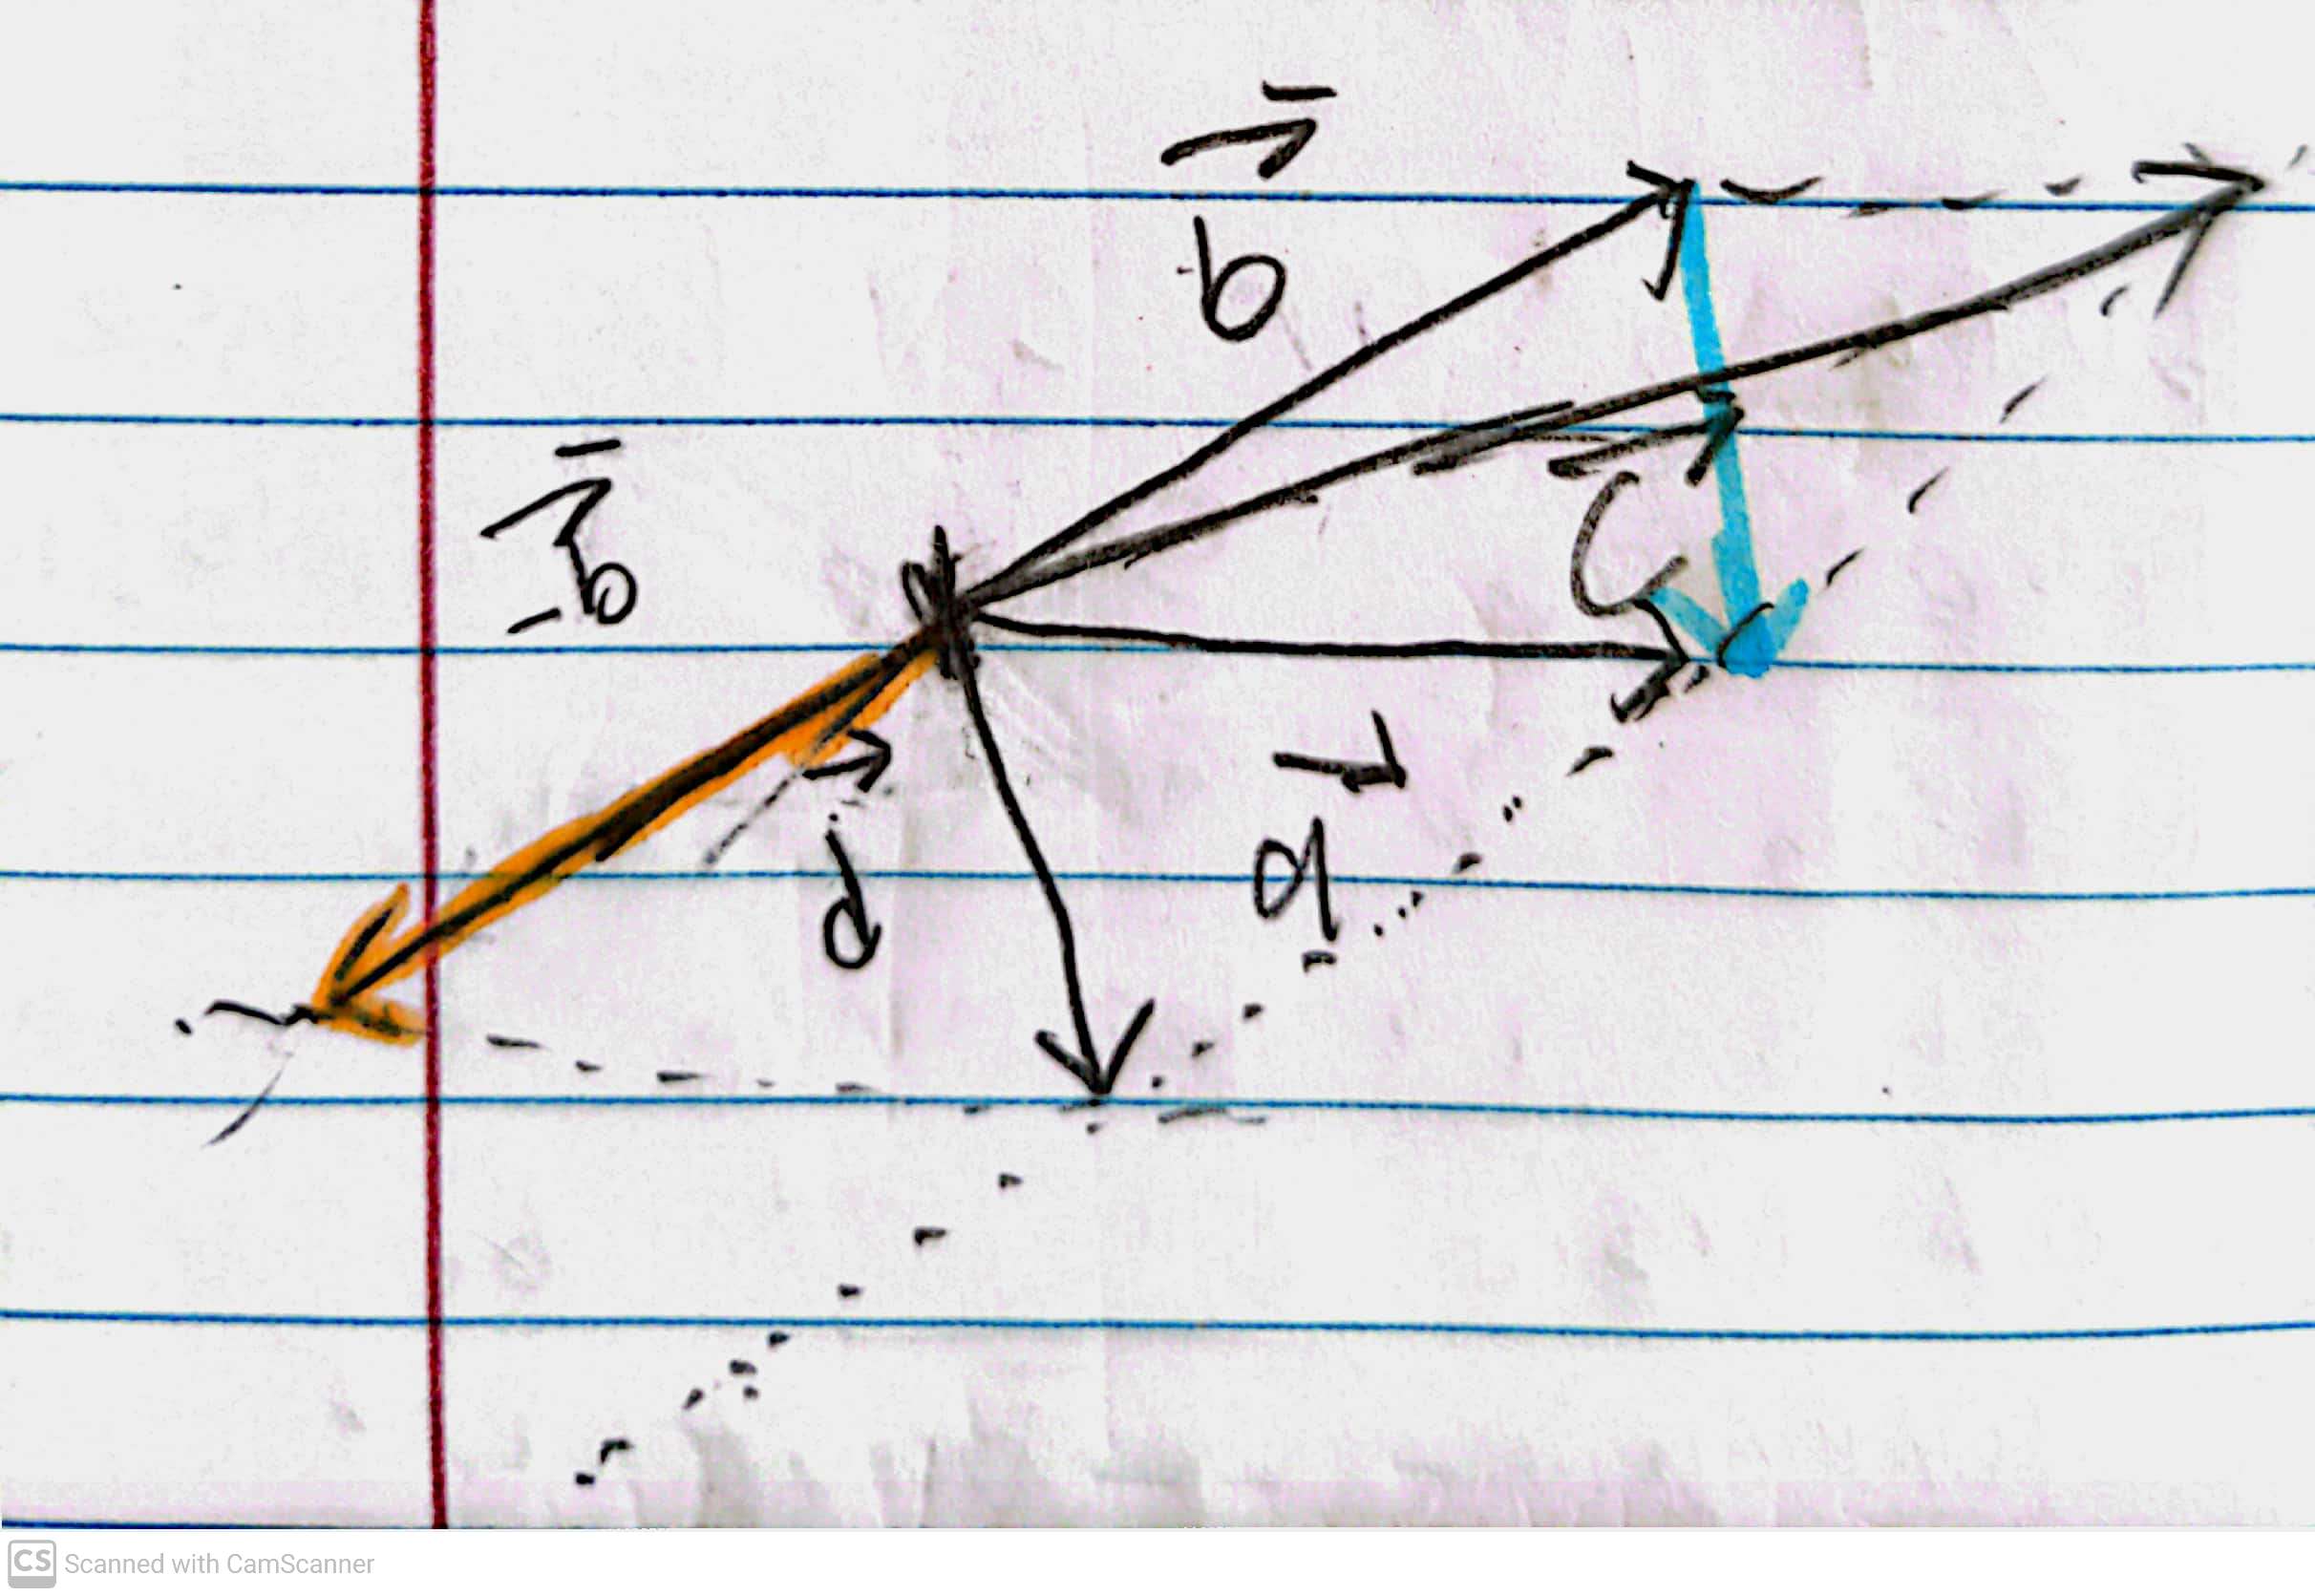 b
-b
c
d
a
CS Scanned with CamScanner